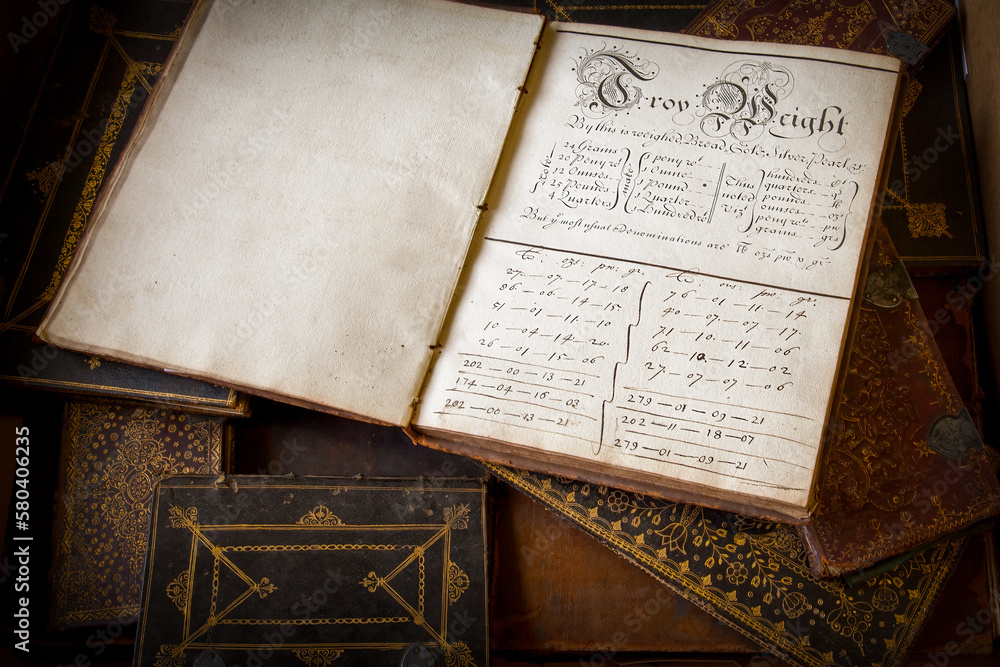 Troy Weight
By this is weighed, Bread, Gold, Silver, Pearl, &c
Note
24 Grains
20 Penyw.ts
12 Ounses
25 Pounds
4 Quarters
make
1 penyw.t
1 Ounse
1 Pound
1 Quarter
1 Hundredw.t
Thus noted viz.t
hundreds
quarters — qrs
pounds — lb
ounses — ozs
penywts — pw
grams — grs
But ye most usual Denominations are lb ozs pw & gr.
lb: ozs: pw: gr:
27 — 07 — 17 — 18
86 — 06 — 14 — 15
51 — 01 — 11 — 10
10 — 04 — 14 — 20
26 — 01 — 15 — 06
202 — 00 — 13 — 21
174 — 04 — 16 — 03
202 — 00 — 13 — 21
lb: ozs: pw: gr:
76 — 01 — 11 — 14
40 — 07 — 07 — 17
71 — 10 — 11 — 06
62 — 10 — 12 — 02
27 — 07 — 07 — 06
279 — 01 — 09 — 21
202 — 11 — 18 — 07
279 — 01 — 09 — 21
Adobe Stock | #580406235